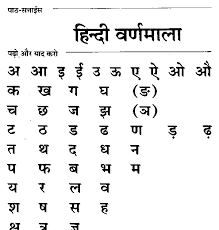 पाठ-सत्ताईस
हिन्दी वर्णमाला
पढ़ो और याद करो
अ आ इ ई उ ऊ ए ऐ ओ औ
क ख ग घ (ङ)
च छ ज झ (ञ)
ट ठ ड ढ ण ड़ ढ़
त थ द ध न
प फ ब भ म
य र ल व
श ष स ह
क्ष त्र ज्ञ